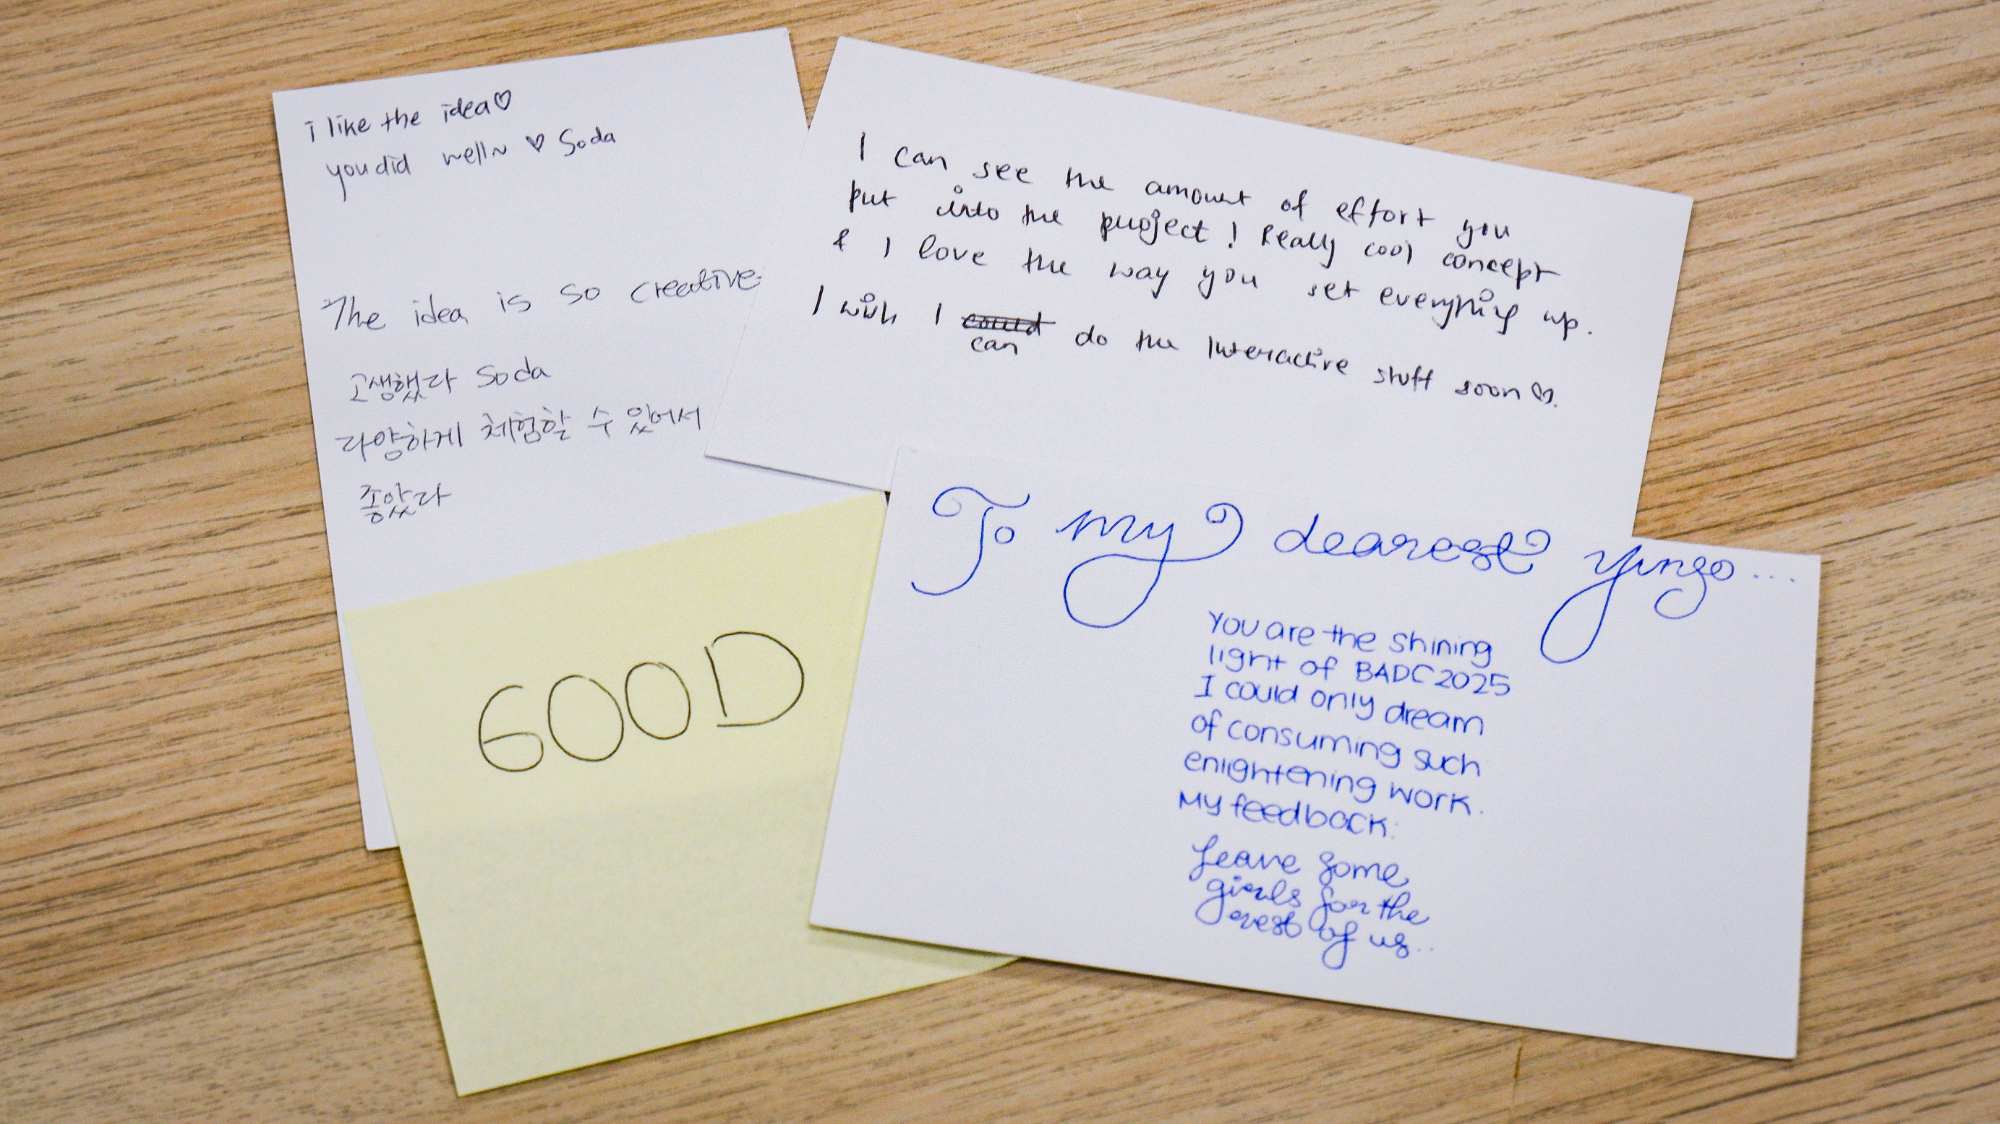 i like the idea♡
you did well~ ♡ Soda
The idea is so creative
고생했다 soda
다양하게 체험할 수 있어서
좋았다
I can see the amount of effort you
put into the project! Really cool concept
& I love the way you set everything up.
I wish I ~~could~~ can do the interactive stuff soon♡.
GOOD
To my dearest yingo...
You are the shining
light of BADC2025
I could only dream
of consuming such
enlightening work.
My feedback:
Leave some
girls for the
rest of us...